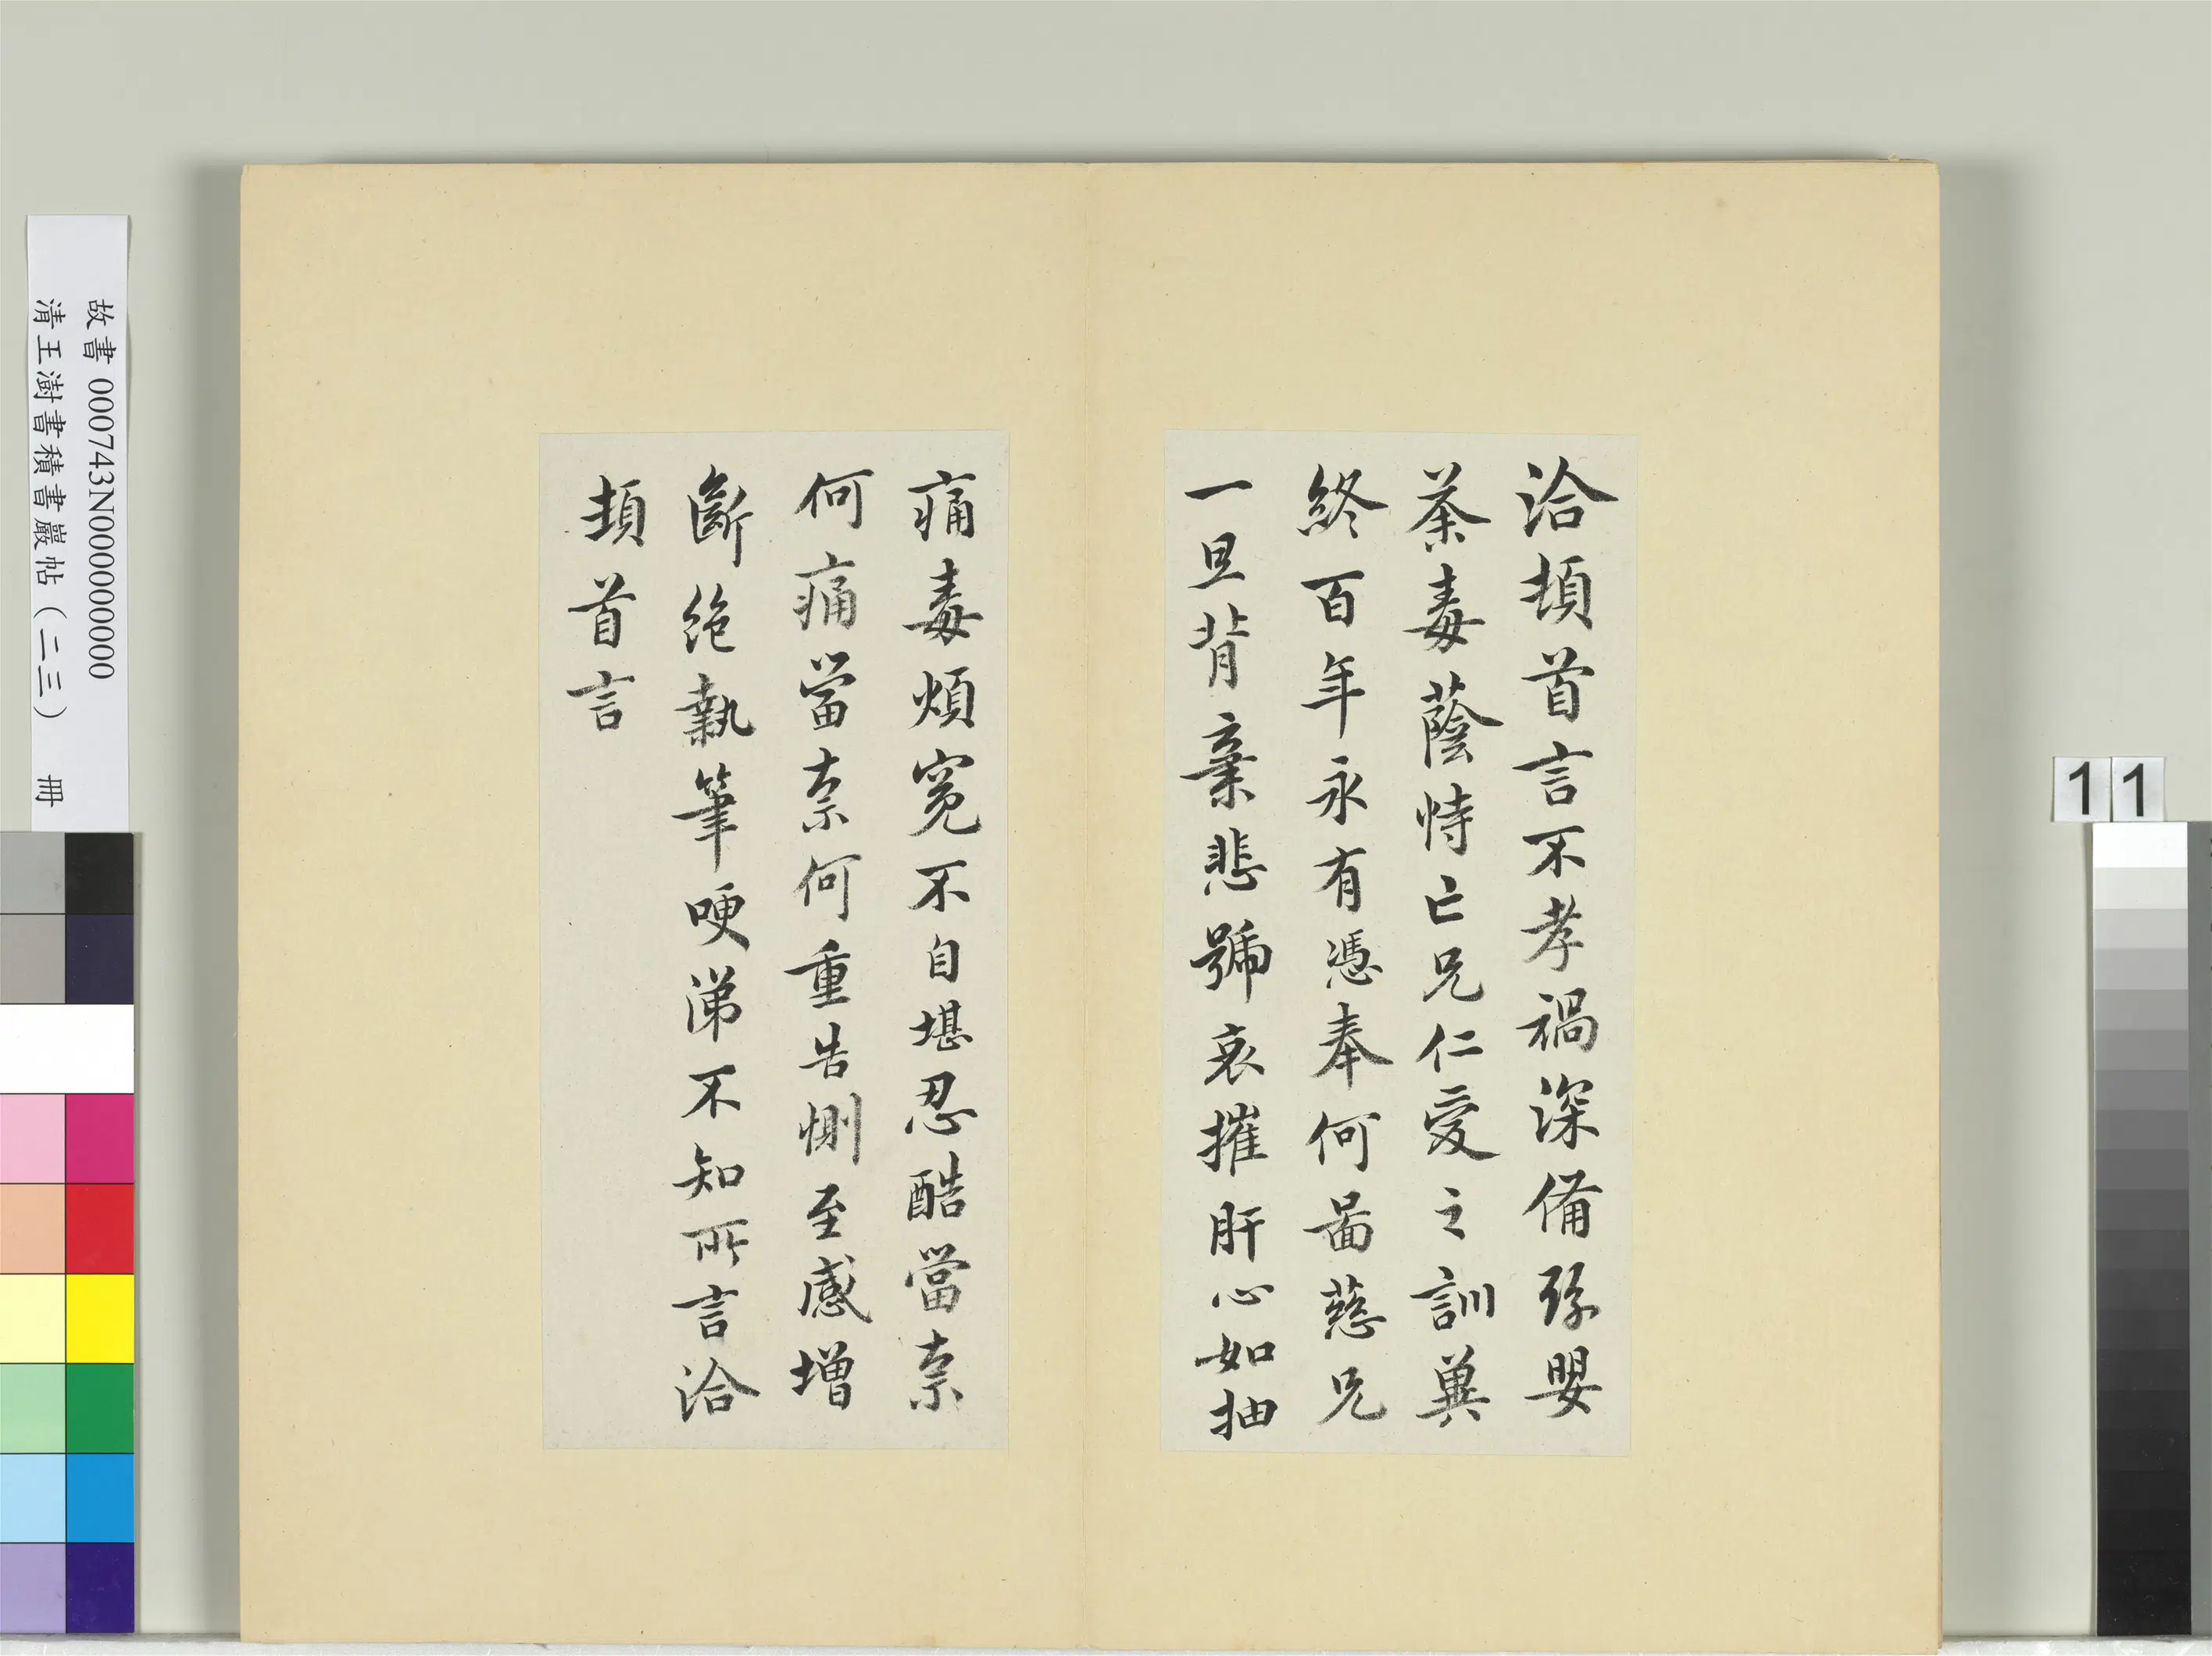 洽頓首言不孝禍深備豫嬰
荼毒蔭恃亡兄仁愛之訓冀
終百年永有憑奉何圖慈兄
一旦背棄悲號哀摧肝心如抽
痛毒煩冤不自堪忍酷當柰
何痛當柰何重告惻至感增
斷絕執筆哽涕不知所言洽
頓首言
故書 000743N000000000
清王澍書積書巖帖(二三) 冊
11